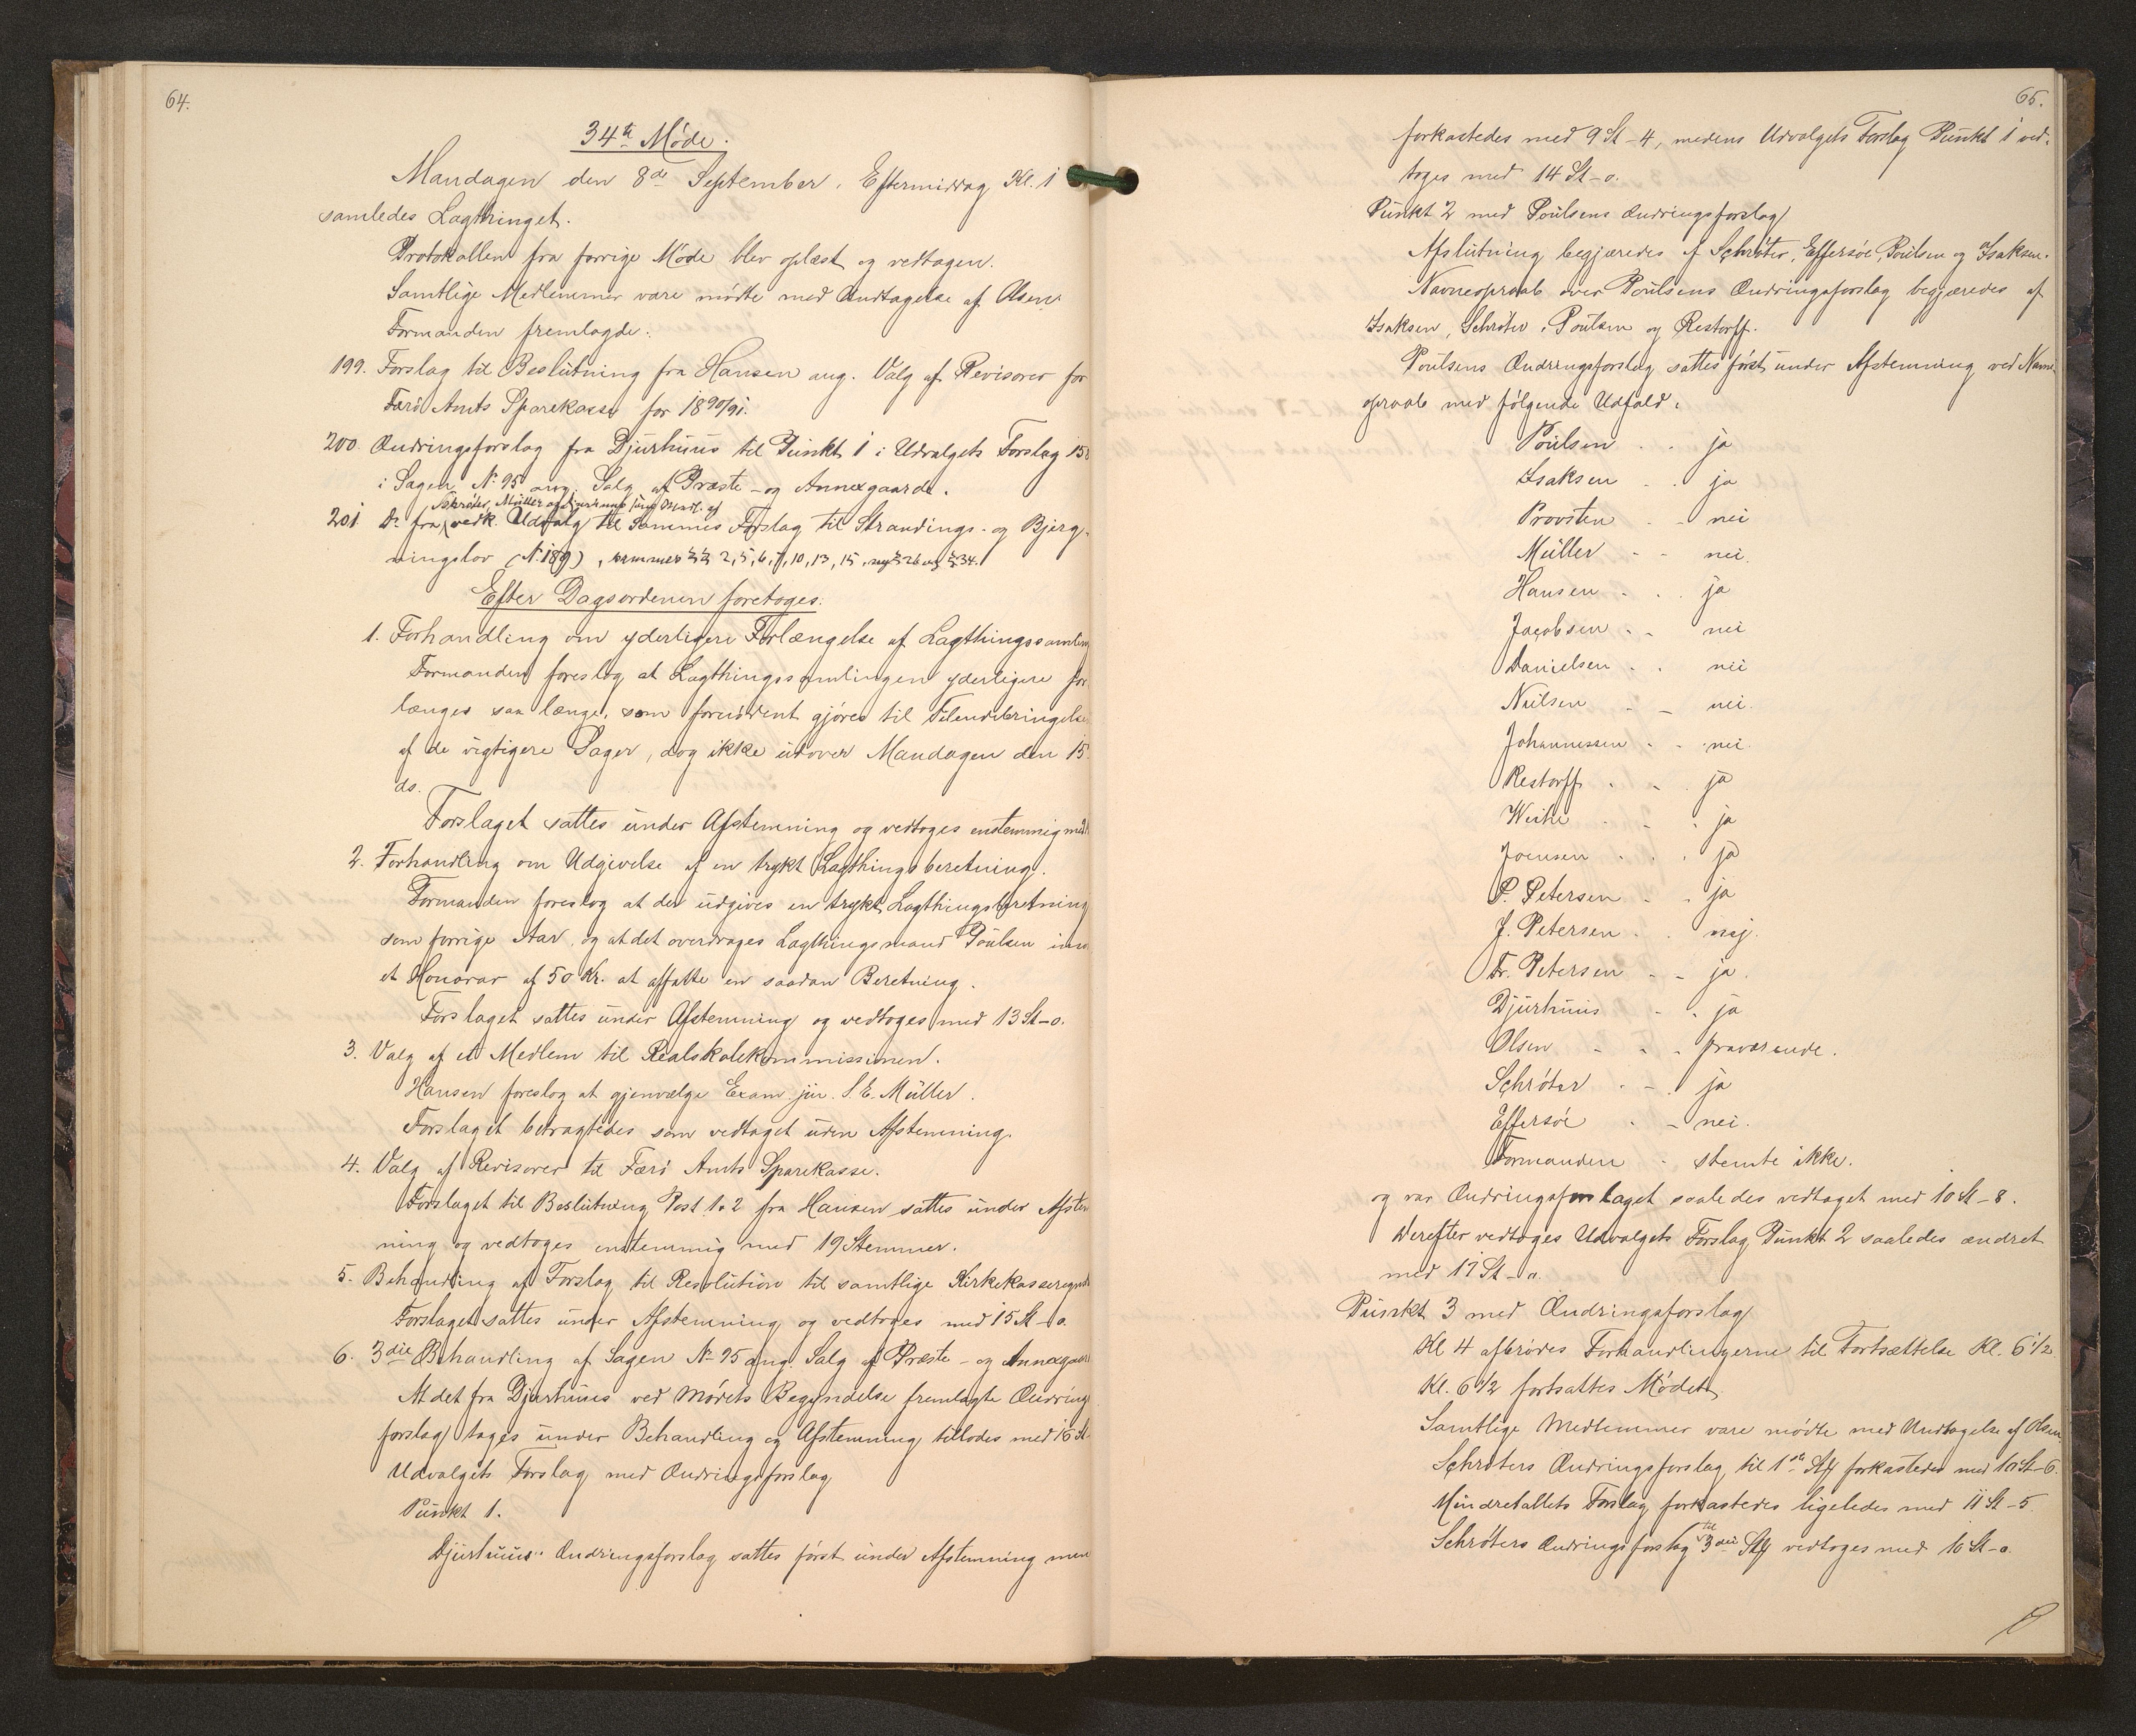 64.
34te Møde.
Mandagen den 8de September, Eftermiddag Kl. 1
samledes Lagthinget.
Protokollen fra forrige Møde blev oplæst og vedtagen.
Samtlige Medlemmer vare mødte med Undtagelse af Olsen.
Formanden fremlagde:
199. Forslag til Beslutning fra Hansen ang. Valg af Revisorer for
Færø Amts Sparekasse for 1890/91.
200. Ændringsforslag fra Djurhuus til Punkt 1 i Udvalgets Forslag 158
i Sagen No 95 ang. Salg af Præste- og Annexgaarde.
Schrøter, Müller og Djurhuus
201. Do fra vedk. Udvalg til Sammes Forslag til Strandings- og Bjerg-
ningslov (No 189), 2, 5, 6, 7, 10, 13, 15, ny § 26 og § 34.
Efter Dagsordenen foretoges:
1. Forhandling om yderligere Forlængelse af Lagthingssamlin
Formanden foreslog at Lagthingssamlingen yderligere for-
længes saa længe, som fornødent gjøres til Tilendebringelse
af de vigtigere Sager, dog ikke udover Mandagen den 15
ds.
Forslaget sattes under Afstemning og vedtoges enstemmig med
2. Forhandling om Udgivelse af en trykt Lagthingsberetning.
Formanden foreslog at der udgives en trykt Lagthingsberetning
som forrige Aar, og at det overdrages Lagthingsmand Poulsen imo
et Honorar af 50 Kr. at affatte en saadan Beretning.
Forslaget sattes under Afstemning og vedtoges med 13 St-0.
3. Valg af et Medlem til Realskolekommissionen.
Hansen foreslog at gjenvælge Exam. jur. S. E. Müller.
Forslaget betragtedes som vedtaget uden Afstemning.
4. Valg af Revisorer til Færø Amts Sparekasse.
Forslaget til Beslutning Post 1 & 2 fra Hansen sattes under Afstem
ning og vedtoges enstemmig med 19 Stemmer.
5. Behandling af Forslag til Resolution til samtlige Kirkekasseregnsk
Forslaget sattes under Afstemning og vedtoges med 15 St-0.
6. 3die Behandling af Sagen No 95 ang. Salg af Præste- og Annexgaar
At det fra Djurhuus ved Mødets Begyndelse fremlagte Ændrings
forslag toges under Behandling og Afstemning tillodes med 16 St-
Udvalgets Forslag med Ændringsforslag
Punkt 1.
Djurhuus' Ændringsforslag sattes først under Afstemning men
65.
forkastedes med 9 St-4, medens Udvalgets Forslag Punkt 1 ved-
toges med 14 St-0.
Punkt 2 med Poulsens Ændringsforslag
Afslutning begjæredes af Schrøter, Effersøe, Poulsen og Isaksen.
Navneopraab over Poulsens Ændringsforslag begjæredes af
Isaksen, Schrøter, Poulsen og Restorff.
Poulsens Ændringsforslag sattes først under Afstemning ved Navne-
opraab med følgende Udfald:
Poulsen - - ja
Isaksen - - ja
Provsten - - nei
Müller - - nei.
Hansen - - ja
Jacobsen - - nei
Danielsen - - nei
Nielsen - - nei.
Johannessen - - nei.
Restorff - - ja
Weihe - - ja
Joensen - - ja
P. Petersen - - ja
J. Petersen - - nej.
Fr. Petersen - - ja.
Djurhuus - - ja
Olsen - - fraværende.
Schrøter - - ja
Effersøe - - nei.
Formanden - stemte ikke.
og var Ændringsforslaget saaledes vedtaget med 10 St-8.
Derefter vedtoges Udvalgets Forslag Punkt 2 saaledes ændret
med 11 St-0.
Punkt 3 med Ændringsforslag
Kl 4 afbrødes Forhandlingerne til Fortsættelse Kl. 6 1/2
Kl. 6 1/2 fortsattes Mødet.
Samtlige Medlemmer vare mødte med Undtagelse af Olsen.
Schrøters Ændringsforslag til 1ste Stk forkastedes med 10 St-6.
Mindretallets Forslag forkastedes ligeledes med 11 St-5.
Schrøters Ændringsforslag til 3die Stk vedtoges med 10 St-0.